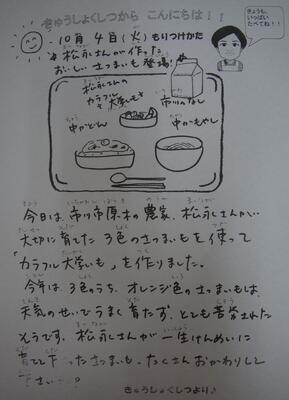 きゅうしょくしつから こんにちは！！
きょうも、
いっぱい
たべてね！！
10月 4日(火)もりつけかた
松永さんが作った
おいしいさつまいも登場！
松永さんの
カラフル
大学いも
市川のなし
中かどん
中かもやし
今日は、市川市原木の農家、松永さんが
大切に育てた 3色のさつまいもを使って
「カラフル大学いも」を作りました。
今年は、3色のうち、オレンジ色のさつまいもは、
天気のせいでうまく育たず、とても苦労された
そうです。松永さんが一生けんめいに
育て さつまいも、たくさんおかわりして
きゅうしょくしつより♪